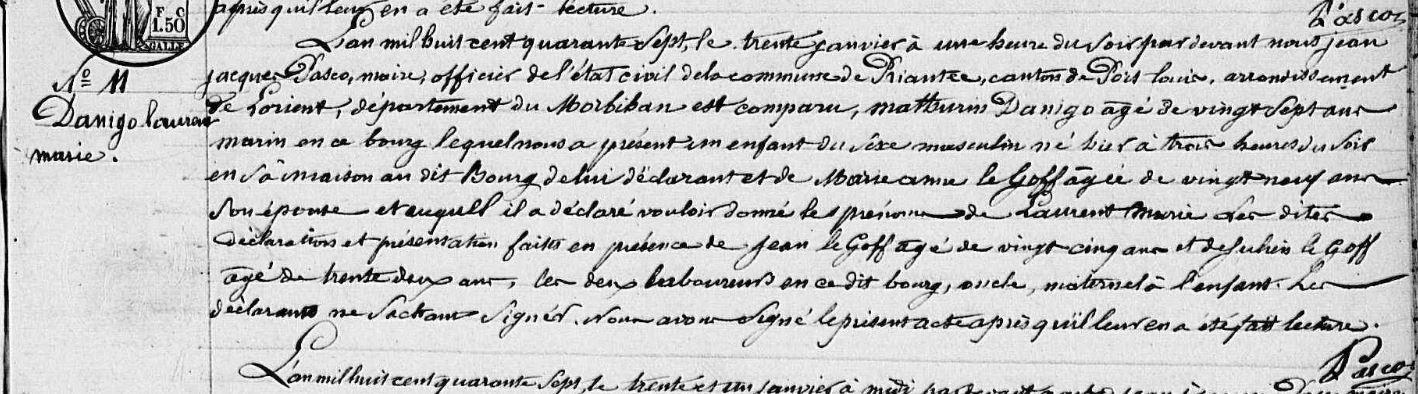 après qu'il leur en a eté fait lecture.
Pasco
F C
1.50
GALLE
L'an mil huit cent quarante sept, le trente janvier à une heure du soir par devant nous jean
jacques Pasco, maire, officier de l'état civil de la commune de Riantec, canton de Port louis, arrondissement
de Lorient, département du Morbihan est comparu, mathurin Danigo agé de vingt sept ans
marin en ce bourg lequel nous a présenté un enfant du séxe masculin né hier à trois heures du soir
en sâ maison au dit Bourg de lui déclarant et de Marie anne le Goff âgée de vingt neuf ans
son épouse et auquel il a déclaré vouloir donné les prénoms de Laurent Marie Les dites
déclarations et présentation faites en présence de Jean le Goff agé de vingt cinq ans et de Julien le Goff
agé de trente deux ans, les deux laboureurs en ce dit bourg, oncle, maternel à l'enfant. Les
déclarans ne sachant signér. Nous avons signé le présent acte après qu'il leur en a été fait lecture.
Nº 11
Danigo laurent
marie.
Pasco
L'an mil huit cent quarante sept, le trente et un janvier à midi par devant nous jean